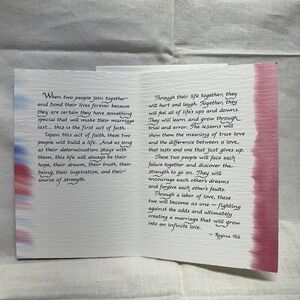 When two people join together
and bond their lives forever because
they are certain they have something
special that will make their marriage
last... this is the first act of faith.
Upon this act of faith, these two
people will build a life. And as long
as their determination stays with
them, this life will always be their
hope, their dream, their truth, their
being, their inspiration, and their
source of strength.
Through their life together, they
will hurt and laugh. Together, they
will feel all of life's ups and downs.
They will learn and grow through
trial and error. The lessons will
show them the meaning of true love
and the difference between a love
that lasts and one that just gives up.
These two people will face each
failure together and discover the
strength to go on. They will
encourage each other's dreams
and forgive each other's faults.
Through a labor of love, these
two will become as one — fighting
against the odds and ultimately
creating a marriage that will grow
into an infinite love.
— Regina Hill